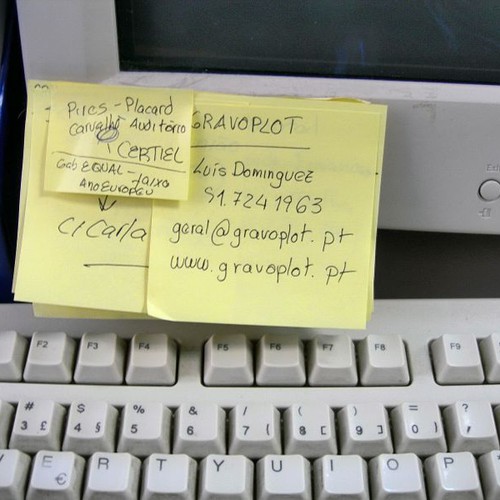 Pires - Placard
Carvalho Auditório
CERTIEL
Gab EQUAL - faixa
Ano Europeu
c/ Carla
GRAVOPLOT
Luís Dominguez
91.724 1963
geral@gravoplot.pt
www.gravoplot.pt
F2 F3 F4 F5 F6 F7 F8 F9
# $ % & / ( ) = ?
3 £ 4 § 5 6 7 { 8 [ 9 ] 0 }
E € R T Y U I O P